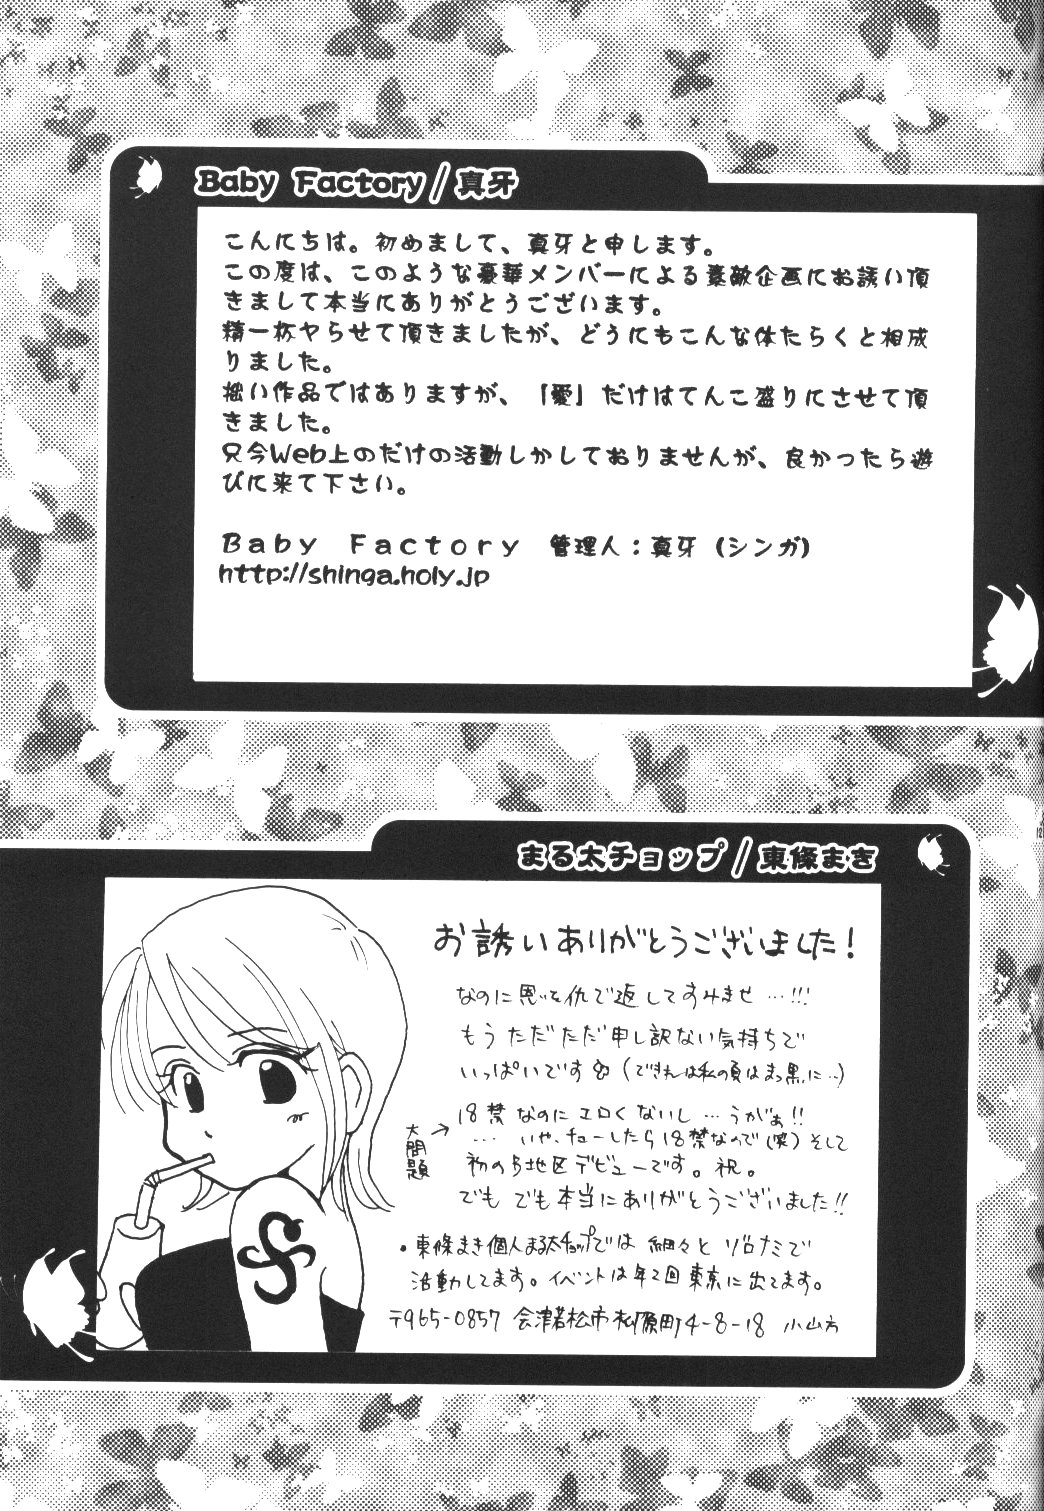 Baby Factory/真牙
こんにちは。初めまして、真牙と申します。
この度は、このような豪華メンバーによる素敵企画にお誘い頂
きまして本当にありがとうございます。
精一杯ヤらせて頂きましたが、どうにもこんな体たらくと相成
りました。
拙い作品ではありますが、「愛」だけはてんこ盛りにさせて頂
きました。
只今Web上のだけの活動しかしておりませんが、良かったら遊
びに来て下さい。
Baby Factory 管理人：真牙（シンガ）
http://shinga.holy.jp
まる太チョップ/東條まき
お誘いありがとうございました！
なのに恩を仇で返してすみませ…!!!
もうただただ申し訳ない気持ちで
いっぱいです（できれば私の頁はまっ黒に…）
大問題→18禁なのにエロくないし…うがぁ!!
…いや、チューしたら18禁なので（笑）そして
初のち地区デビューです。祝。
でもでも本当にありがとうございました!!
・東條まき個人まる太チョップでは細々とゾロナミで
活動してます。イベントは年2回東京に出てます。
〒965-0857 会津若松市 町4-8-18 小山方